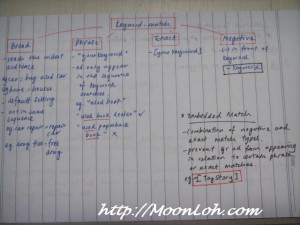 Keyword-match
Broad
- reach the widest
audience
eg car : buy used car
- default setting
- not in same
sequence
eg car repair - repair
car
Phrase
- "your keyword"
- ad only appear
in the sequence
of keyword
searches
eg. "used book"
used book dealer ✓
used paperback
book X
Exact
- [your keyword]
Negative
(-) in front of
keyword
- keyword
* Embedded Match
- combination of negative and
exact match types.
- prevent yr ad from appearing
in relation to certain phrase
or exact matches.
eg -[Toy Story]
http://MoonLoh.com